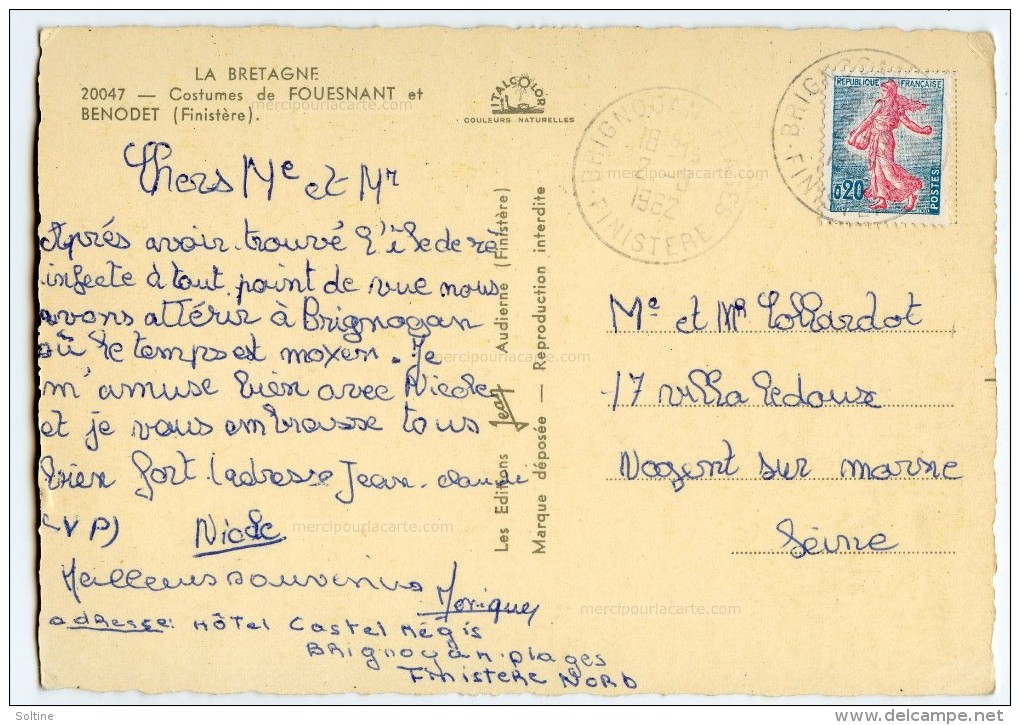 LA BRETAGNE
20047 — Costumes de FOUESNANT et
BENODET (Finistère).
ITALCOLOR
COULEURS NATURELLES
Chers Me et Mr
Après avoir trouvé l'ile de ré
infecte à tout point de vue nous
avons attérir à Brignogan
où le temps est moyen. Je
m'amuse bien avec Nicole
et je vous embrasse tous
bien fort (adresse Jean-claude
SVP) Nicole
Meilleurs souvenirs
adresse: HÔTEL Castel Régis
Brignogan-plages
Finistere NORD
Les Editions Jean Audierne (Finistère)
Marque déposée — Reproduction interdite
BRIGNOGAN PLAGES
FINISTERE
BRIGNOGAN
FINISTERE
REPUBLIQUE FRANÇAISE
0,20
POSTES
Me et Mr
17 villa Ledoux
Nogent sur marne
Seine
mercipourlacarte.com
mercipourlacarte.com
mercipourlacarte.com
mercipourlacarte.com
Soltine
delcampe.net